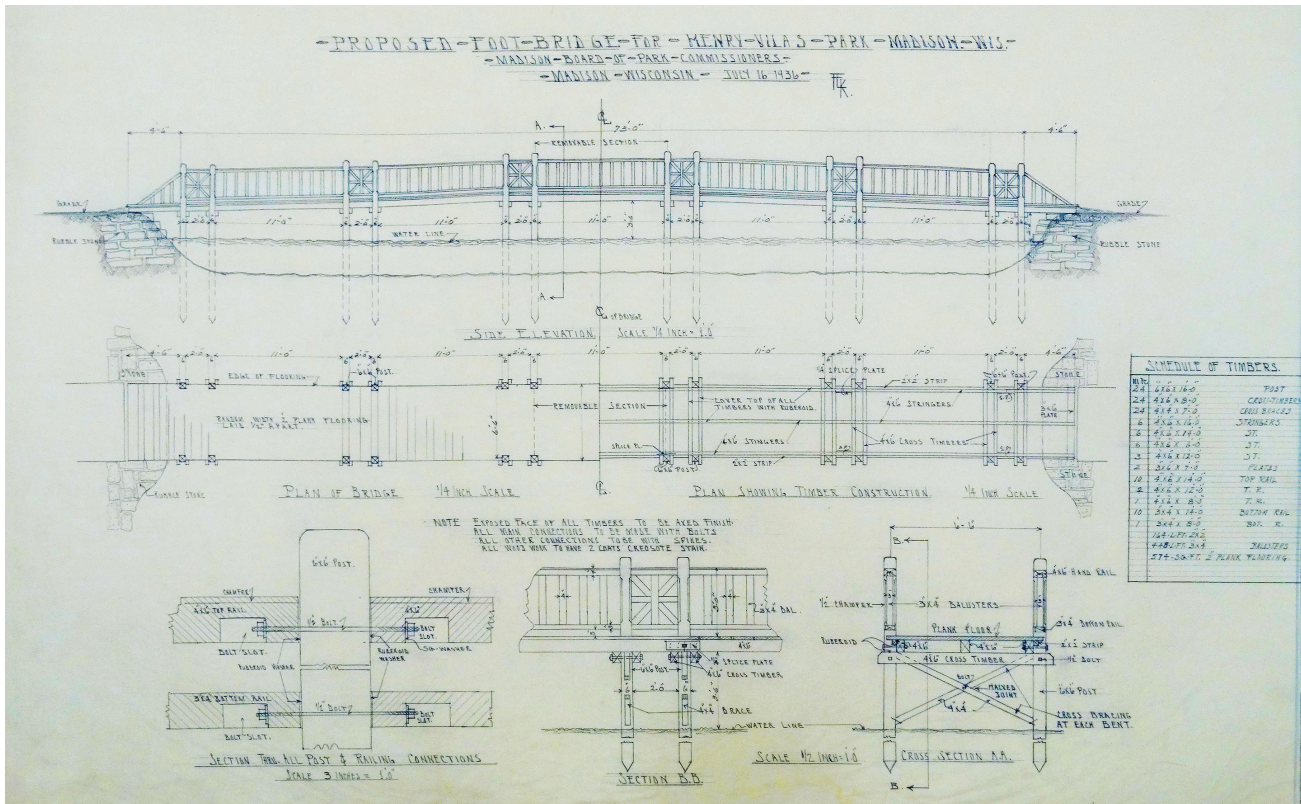 -PROPOSED-FOOT-BRIDGE-FOR-HENRY-VILAS-PARK-MADISON-WIS.-
-MADISON-BOARD-OF-PARK-COMMISSIONERS.-
-MADISON-WISCONSIN- JULY 16 1936-
4'-6" 73'-0" 4'-6"
A.
REMOVABLE SECTION
GRADE GRADE
2'-0" 11'-0" 2'-0" 11'-0" 2'-0" 11'-0" 2'-0" 11'-0" 2'-0" 11'-0" 2'-0"
RUBBLE STONE WATER LINE RUBBLE STONE
A.
OF BRIDGE
SIDE ELEVATION. SCALE 1/4 INCH = 1'.0"
4'-6" 2'-0" 11'-0" 2'-0" 11'-0" 2'-0" 11'-0" 2'-0" 11'-0" 2'-0" 11'-0" 2'-0" 4'-6"
STONE EDGE OF FLOORING 6"x6" POST. SPLICE PLATE 2"x2" STRIP 6"x6" POST. STONE
RANDOM WIDTH 2" PLANK FLOORING
LAID 1/2" APART.
6'-6"
REMOVABLE SECTION
COVER TOP OF ALL
TIMBERS WITH RUBEROID.
4"x6" STRINGERS
3"x6"
PLATE
4"x6" STINGERS
4"x6" CROSS TIMBERS
SPLICE PL.
6"x6" POST
2"x2" STRIP
STONE
RUBBLE STONE
PLAN OF BRIDGE 1/4 INCH SCALE
PLAN SHOWING TIMBER CONSTRUCTION. 1/4 INCH SCALE
SCHEDULE OF TIMBERS.
24 6"x6"x16'-0" POST
24 4"x6"x8'-0" CROSS-TIMBERS
24 4"x4"x7'-0" CROSS BRACES
6 4"x6"x16'-0" STRINGERS
6 4"x6"x14'-0" ST.
6 4"x6"x6'-0" ST.
3 4"x6"x12'-0" ST.
2 3"x6"x7'-0" PLATES
10 4"x6"x14'-0" TOP RAIL
4 4"x6"x12'-0" T. R.
1 4"x6"x8'-0" T. R.
10 3"x4"x14'-0" BOTTOM RAIL
1 3"x4"x8'-0" BOT. R.
164-L.FT. 2"x2"
448-L.FT. 3"x4" BALUSTERS
574-SQ.FT. 2" PLANK FLOORING
NOTE EXPOSED FACE OF ALL TIMBERS TO BE AXED FINISH.
ALL MAIN CONNECTIONS TO BE MADE WITH BOLTS
ALL OTHER CONNECTIONS TO BE WITH SPIKES.
ALL WOOD WORK TO HAVE 2 COATS CREOSOTE STAIN.
6"x6" POST.
CHAMFER CHAMFER
4"x6" TOP RAIL 4"x6"
1/2" BOLT.
BOLT
SLOT.
BOLT SLOT.
SQ-WASHER
RUBEROID WASHER
RUBEROID
WASHER
3"x4" BOTTOM RAIL
1/2" BOLT.
BOLT
SLOT.
BOLT SLOT.
SECTION THRU. ALL POST & RAILING CONNECTIONS
SCALE 3 INCHES = 1'.0"
3"x4" BAL.
4"x6"
SPLICE PLATE
4"x6" CROSS TIMBER
6"x6" POST
2'-0"
4"x4" BRACE
WATER LINE
SECTION B.B.
SCALE 1/2 INCH=1'.0"
6'-6"
B.
4"x6" HAND RAIL
1/2" CHAMFER
3"x4" BALUSTERS
3"x4" BOTTOM RAIL
PLANK FLOOR
RUBEROID
2"x2" STRIP
4"x6" 4"x6"
4"x6" CROSS TIMBER
1/2" BOLT
BOLT
HALVED
JOINT
6"x6" POST
4"x4"
CROSS BRACING
AT EACH BENT.
CROSS SECTION A.A.
B.